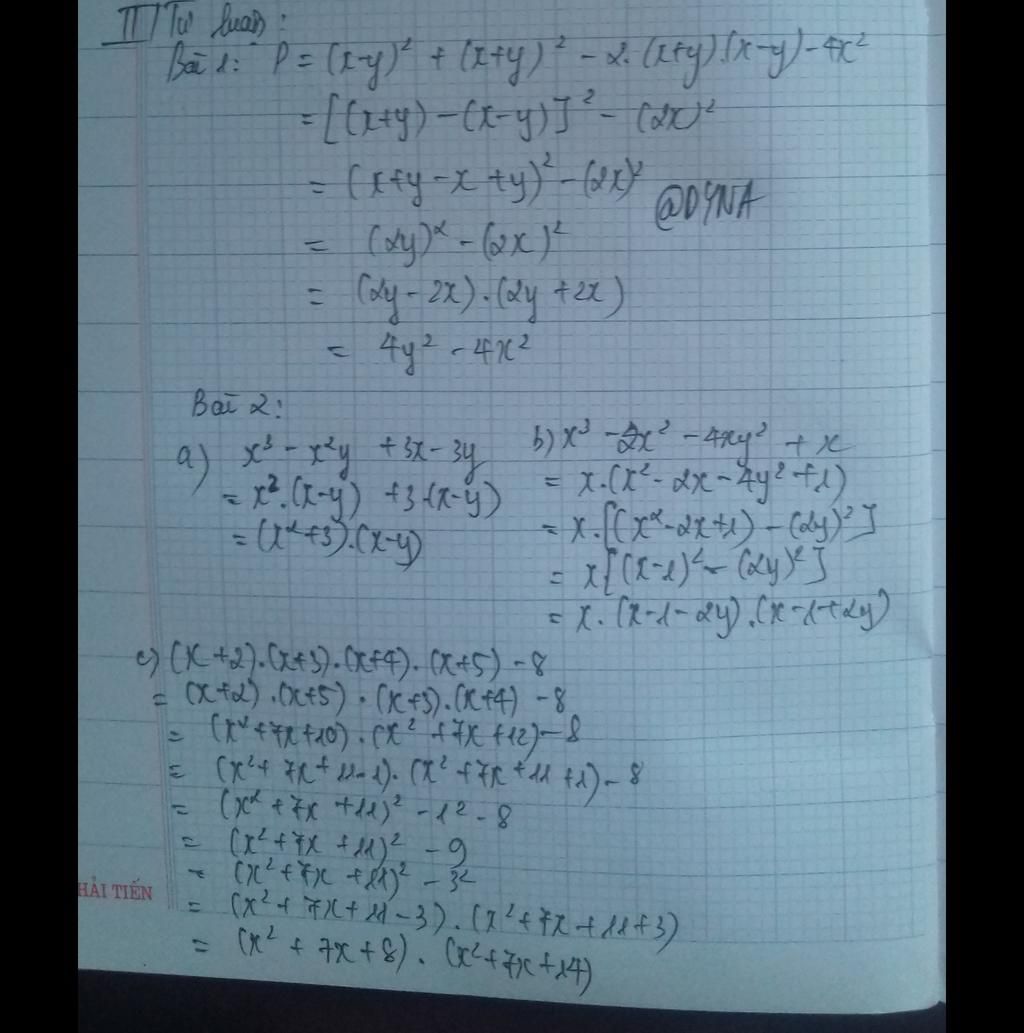 II/ Tự luận:
Bài 1: P = (x-y)² + (x+y)² - 2.(x+y).(x-y) - 4x²
= [(x+y) - (x-y)]² - (2x)²
= (x+y - x + y)² - (2x)²
@DYNA
= (2y)² - (2x)²
= (2y - 2x).(2y + 2x)
= 4y² - 4x²
Bài 2:
a) x³ - x²y + 3x - 3y
= x².(x-y) + 3.(x-y)
= (x²+3).(x-y)
b) x³ - 2x² - 4xy² + x
= x.(x² - 2x - 4y² + 1)
= x.[(x² - 2x + 1) - (2y)²]
= x[(x-1)² - (2y)²]
= x.(x-1-2y).(x-1+2y)
c) (x+2).(x+3).(x+4).(x+5) - 8
= (x+2).(x+5).(x+3).(x+4) - 8
= (x²+7x+10).(x²+7x+12) - 8
= (x²+7x+11-1).(x²+7x+11+1) - 8
= (x²+7x+11)² - 1² - 8
= (x²+7x+11)² - 9
= (x²+7x+11)² - 3²
HẢI TIẾN
= (x²+7x+11-3).(x²+7x+11+3)
= (x²+7x+8).(x²+7x+14)